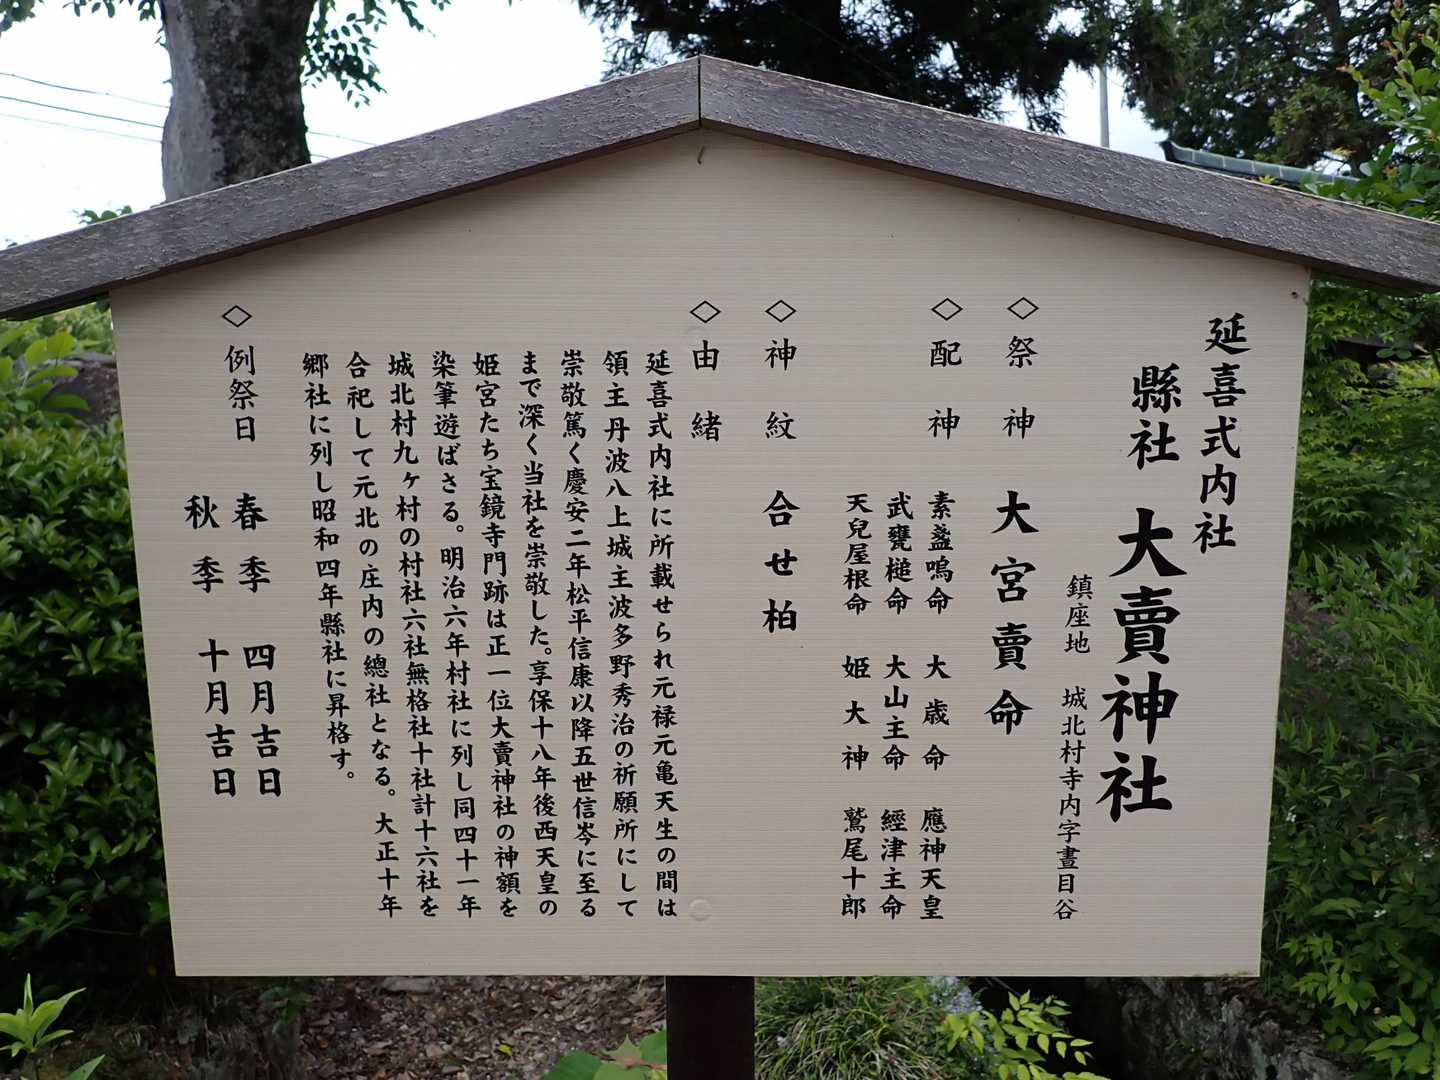 延喜式内社
縣社 大賣神社
鎮座地 城北村寺内字畫目谷
◇祭神 大宮賣命
◇配神 素盞嗚命 大歳命 應神天皇
武甕槌命 大山主命 經津主命
天兒屋根命 姫大神 鷲尾十郎
◇神紋 合せ柏
◇由緒
延喜式内社に所載せられ元禄元亀天生の間は
領主丹波八上城主波多野秀治の祈願所にして
崇敬篤く慶安二年松平信康以降五世信岑に至る
まで深く当社を崇敬した。享保十八年後西天皇の
姫宮たち宝鏡寺門跡は正一位大賣神社の神額を
染筆遊ばさる。明治六年村社に列し同四十一年
城北村九ヶ村の村社六社無格社十社計十六社を
合祀して元北の庄内の總社となる。大正十年
郷社に列し昭和四年縣社に昇格す。
◇例祭日 春季 四月吉日
秋季 十月吉日